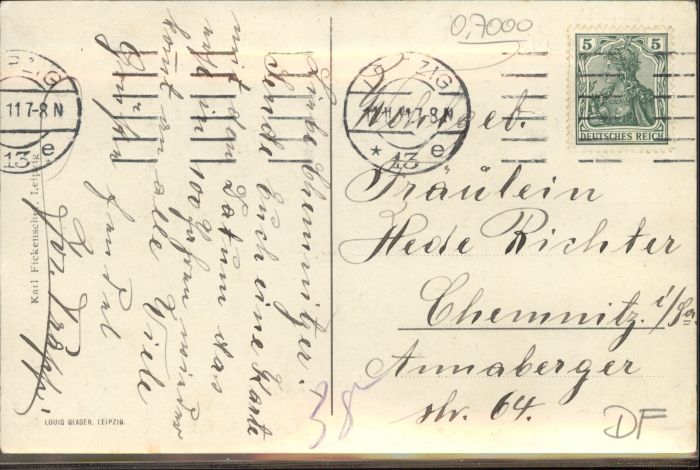 Liebe Chemnitzer!
Sende Euch eine Karte
mit dem Datum das
erst in 100 Jahren wieder
kommt an alle Viele
Grüße
sendet
Karl Fickenscher, Leipzig
LOUIS GLASER, LEIPZIG.
11 7-8 N
13 e
LEIPZIG
11.11.11 7-8 N
* 13 e
0,7000
5 5
DEUTSCHES REICH
Wohlgeb.
Fräulein
Hede Richter
Chemnitz i/Sa
Annaberger
str. 64.
DF